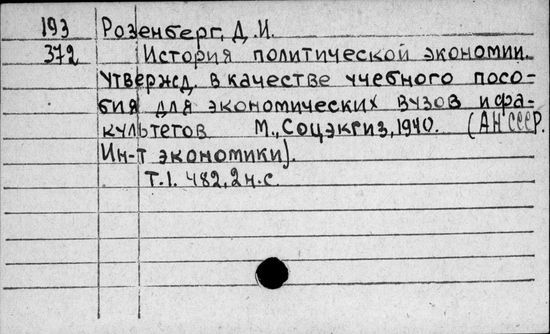 193 Розенберг, Д.И.
372 История политической экономии.
Утвержд. в качестве учебного посо-
бия для экономических вузов и фа-
культетов. М., Соцэкгиз, 1940. (АН СССР.
Ин-т экономики).
Т.1. 482, 2 н.с.